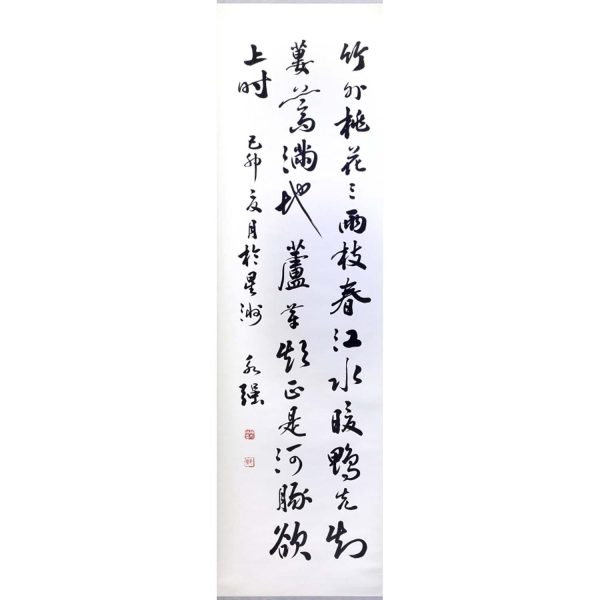 竹外桃花三兩枝春江水暖鴨先知
蔞蒿滿地蘆芽短正是河豚欲
上时 己卯夏月於星洲 永强